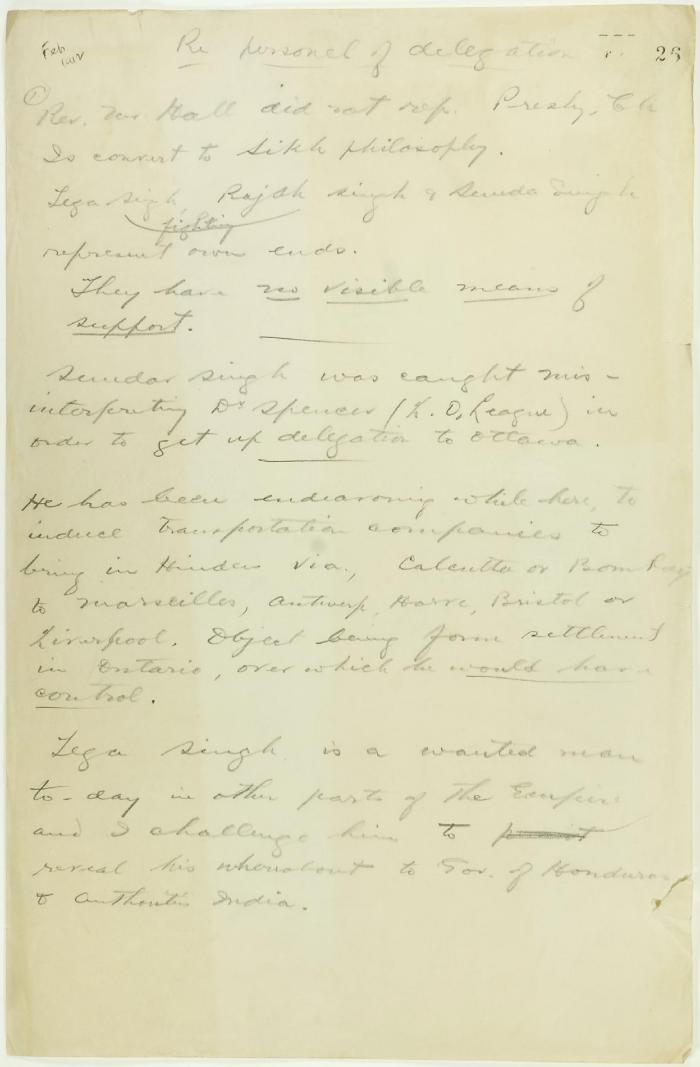 Feb 1912
Re personel of delegation
26
① Rev. Mr. Hall did not rep. Presby. Ch
Is convert to Sikh philosophy.
Tega Singh, Rajah Singh & Sunda Singh
fighting
represent own ends.
They have no visible means of
support.
Sundar Singh was caught mis-
interpreting Dr Spencer (L. O. League) in
order to get up delegation to Ottawa.
He has been endeavoring while here, to
induce transportation companies to
bring in Hindus via., Calcutta or Bombay
to Marseilles, Antwerp, Havre, Bristol or
Liverpool. Object being form settlement
in Ontario, over which he would have
control.
Tega Singh is a wanted man
to-day in other parts of the Empire
and I challenge him to
reveal his whereabout to Gov. of Honduras
& Authorities India.